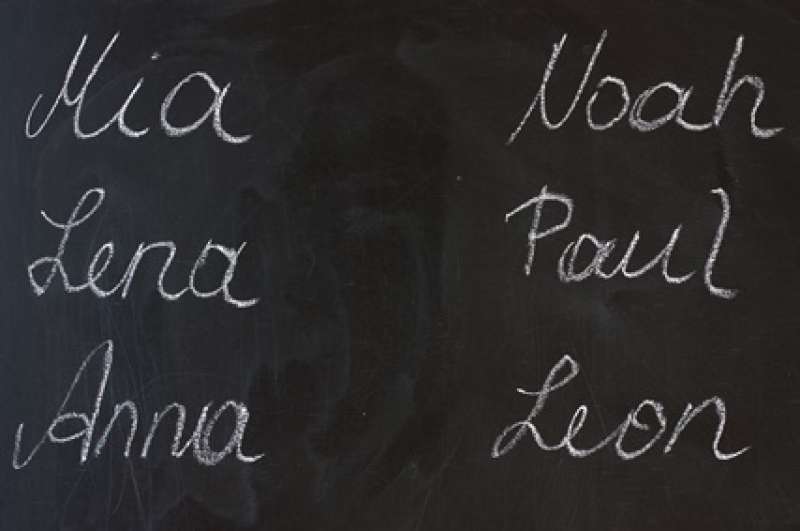 Mia Noah
Lena Paul
Anna Leon